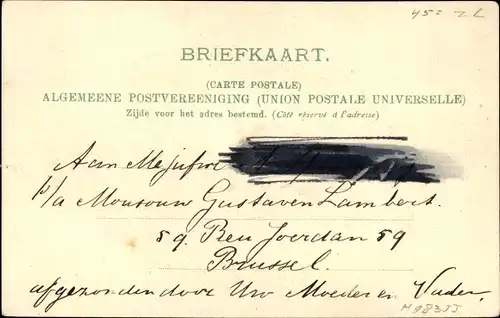 45= ZL
BRIEFKAART.
(CARTE POSTALE)
ALGEMEENE POSTVEREENIGING (UNION POSTALE UNIVERSELLE)
Zijde voor het adres bestemd. (Côté réservé à l'adresse)
Aan Mejufvr
p/a Monsour Gustaven Lambert.
59. Reu Joerdan 59
Brussel.
afgezonden door Uw Moeder en Vader
H983JJ